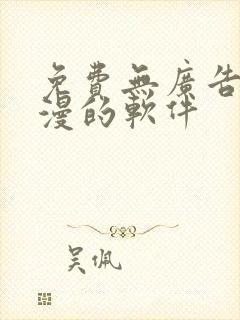 免費無廣告
漫的軟件
吴佩